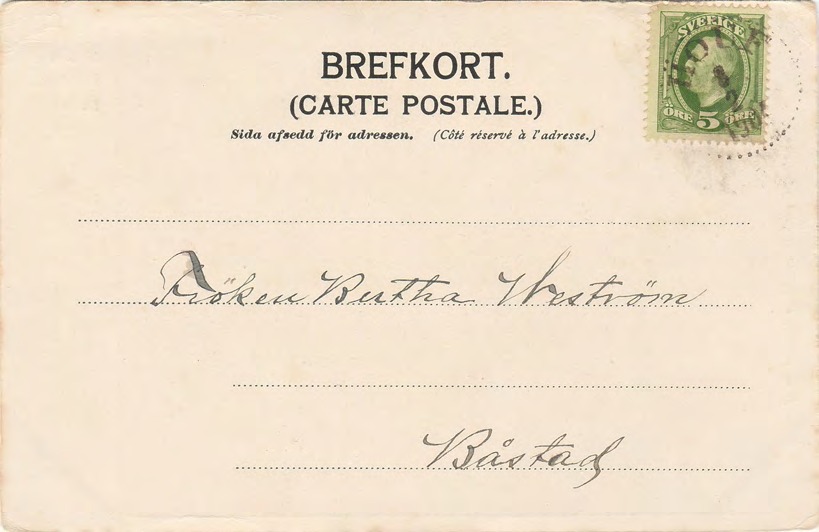 BREFKORT.
(CARTE POSTALE.)
Sida afsedd för adressen. (Côté réservé à l'adresse.)
SVERIGE
ÖRE 5 ÖRE
Fröken Bertha Weström
Båstad